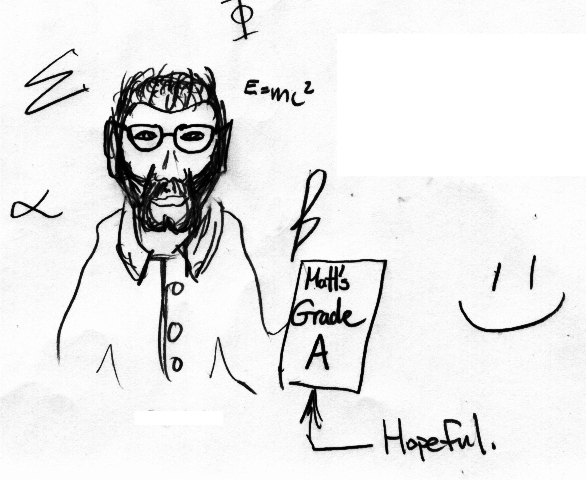 Φ
Σ
E=mc²
α
β
Matt's
Grade
A
Hopeful.